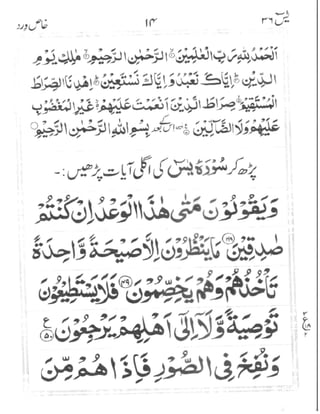 یٰسٓ ۳۶ ۱۴ خاص ورد
اَلْحَمْدُ لِلّٰهِ رَبِّ الْعٰلَمِیْنَ الرَّحْمٰنِ الرَّحِیْمِ مٰلِكِ یَوْمِ
الدِّیْنِ اِیَّاكَ نَعْبُدُ وَ اِیَّاكَ نَسْتَعِیْنُ اِهْدِنَا الصِّرَاطَ
الْمُسْتَقِیْمَ صِرَاطَ الَّذِیْنَ اَنْعَمْتَ عَلَیْهِمْ غَیْرِ الْمَغْضُوْبِ
عَلَیْهِمْ وَلَا الضَّآلِّیْنَ اس کے بعد بِسْمِ اللهِ الرَّحْمٰنِ الرَّحِیْمِ
پڑھ کر سُوْرَۃ یٰسٓ کی اگلی آیات پڑھیں :-
وَ یَقُوْلُوْنَ مَتٰی هٰذَا الْوَعْدُ اِنْ كُنْتُمْ
صٰدِقِیْنَ ﴿۴۸﴾ مَا یَنْظُرُوْنَ اِلَّا صَیْحَةً وَّاحِدَةً
تَاْخُذُهُمْ وَهُمْ یَخِصِّمُوْنَ ﴿۴۹﴾ فَلَا یَسْتَطِیْعُوْنَ
تَوْصِیَةً وَّلَاۤ اِلٰۤی اَهْلِهِمْ یَرْجِعُوْنَ ﴿۵۰﴾ ع
وَ نُفِخَ فِی الصُّوْرِ فَاِذَا هُمْ مِّنَ